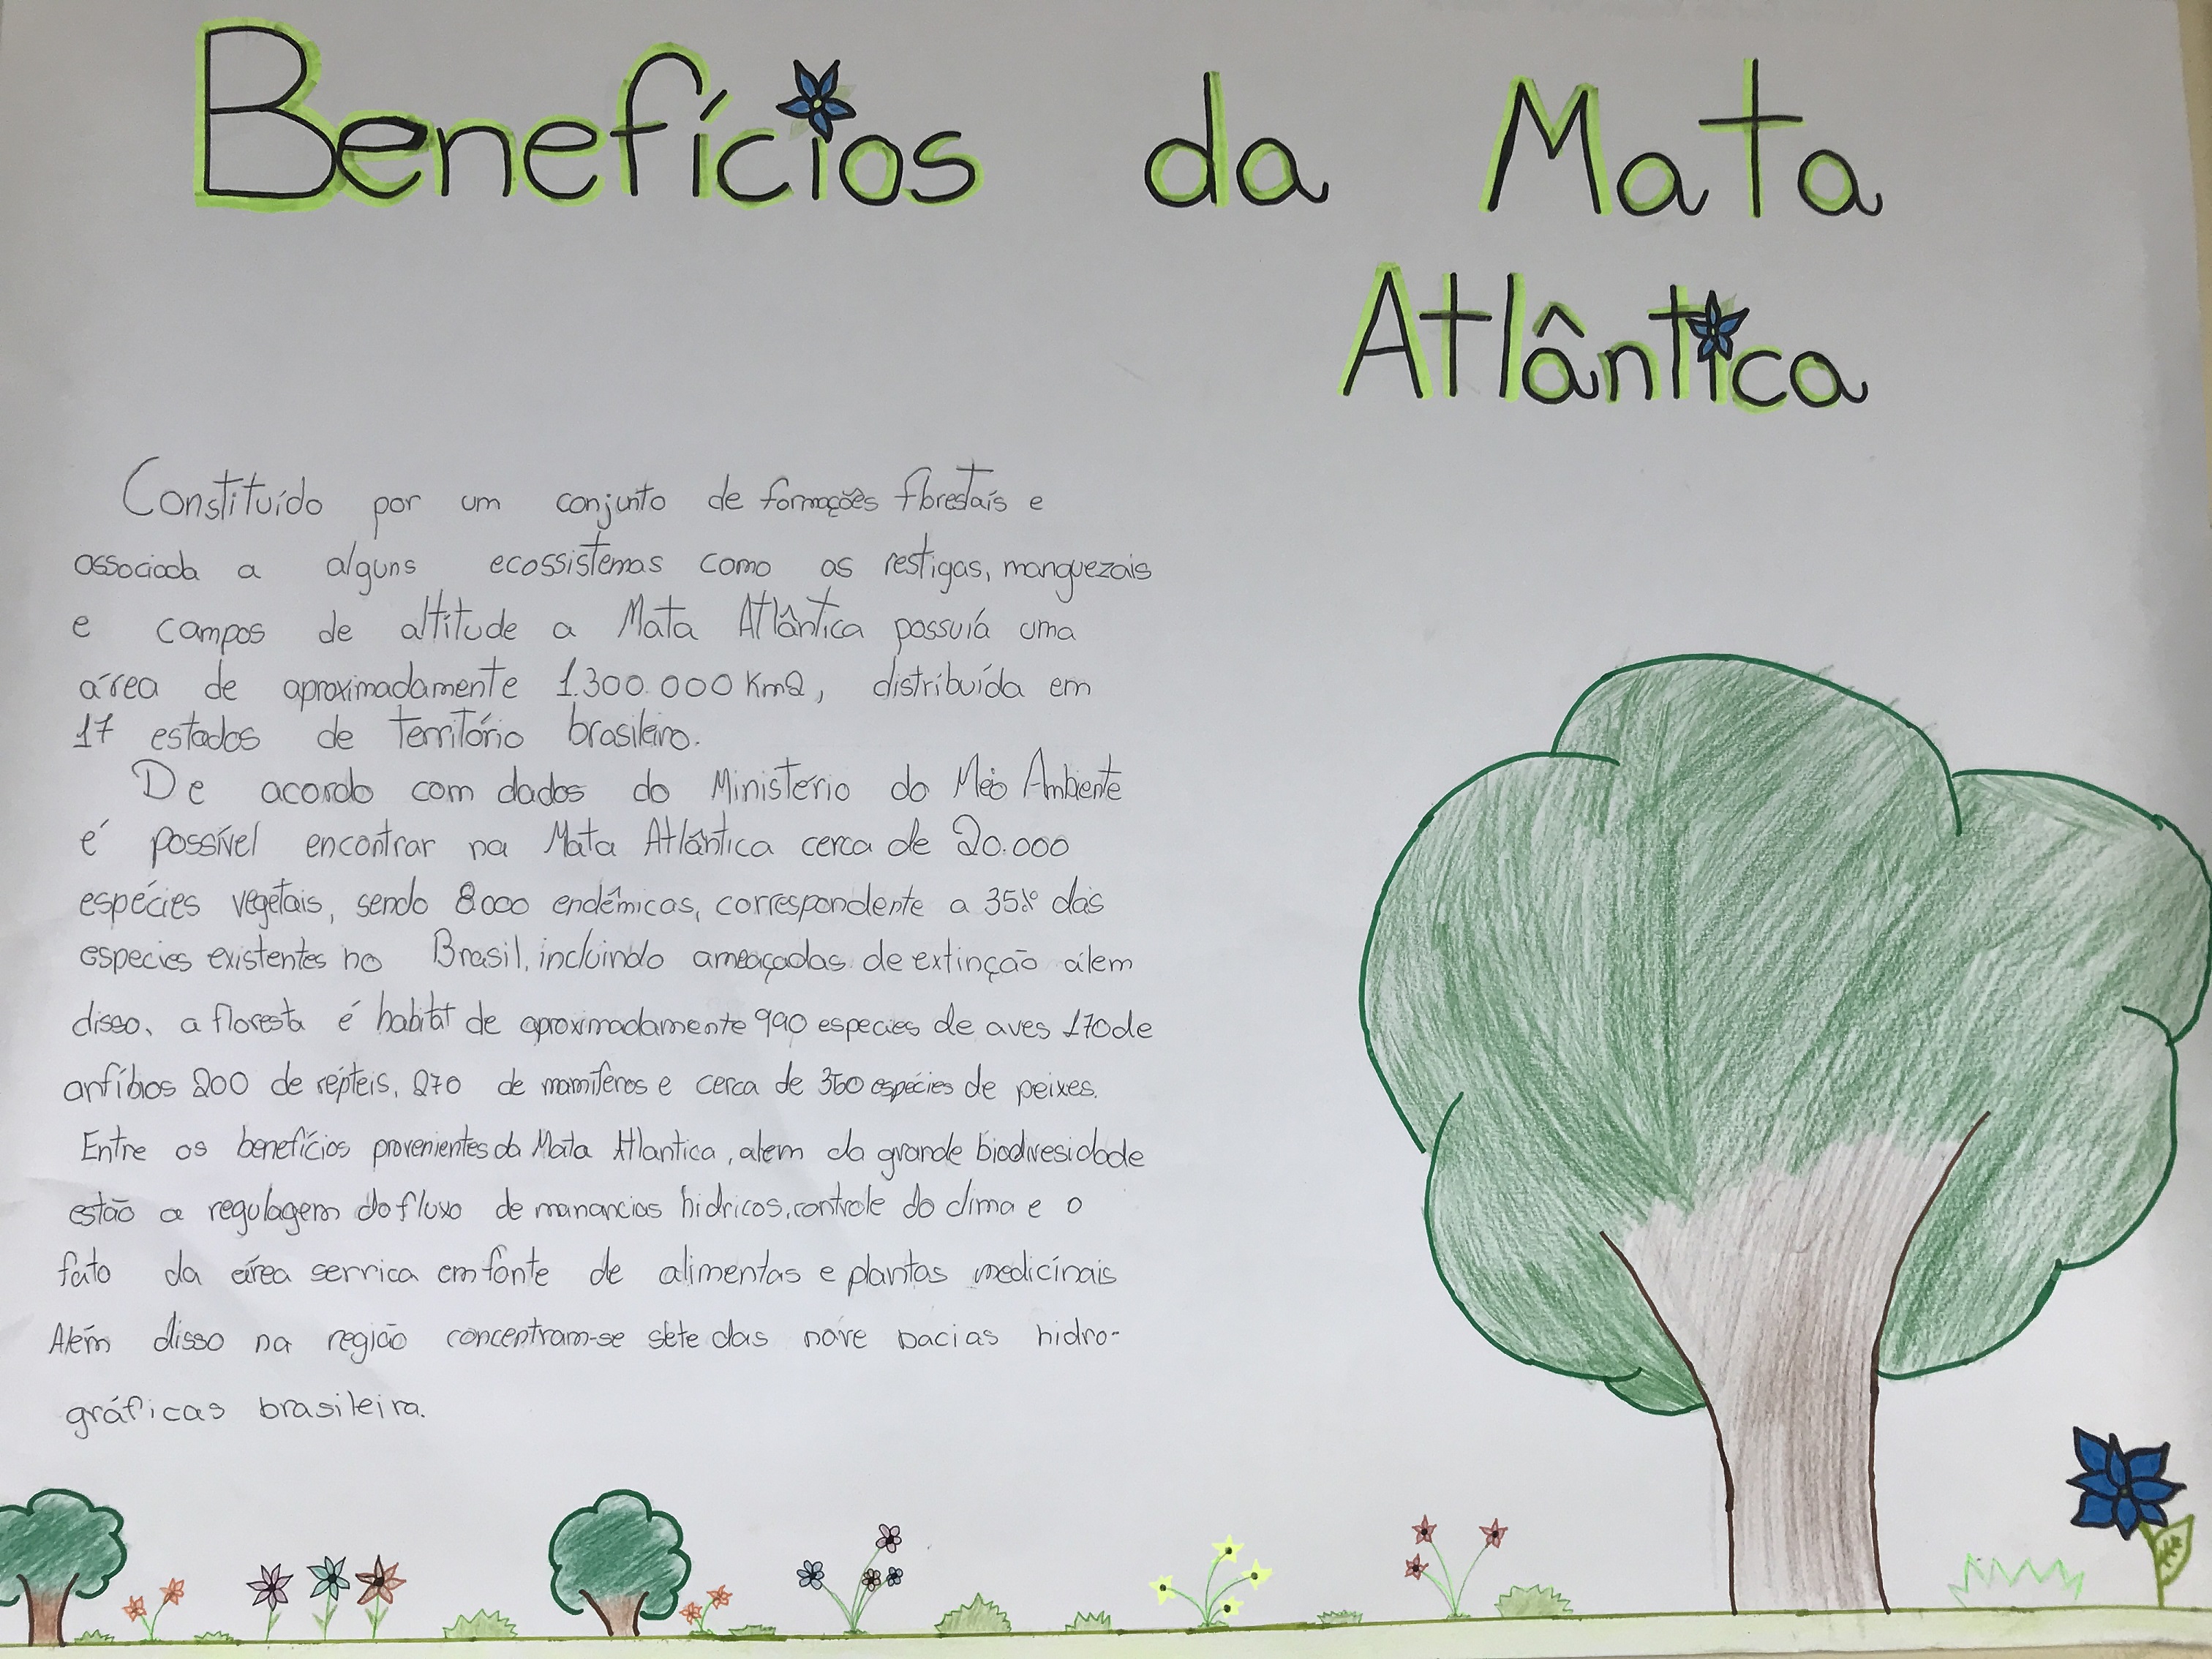 Benefícios da Mata
Atlântica
Constituído por um conjunto de formações florestais e
associada a alguns ecossistemas como as restigas, manguezais
e campos de altitude a Mata Atlântica possuiá uma
área de aproximadamente 1.300.000 Km2, distribuída em
17 estados de território brasileiro.
De acordo com dados do Ministério do Meio Ambiente
é possível encontrar na Mata Atlântica cerca de 20.000
espécies vegetais, sendo 8000 endêmicas, correspondente a 35% das
especies existentes no Brasil, incluindo ameaçadas de extinção alem
disso, a floresta é habitat de aproximadamente 990 especies de aves 170 de
anfíbios 200 de répteis, 270 de mamíferos e cerca de 350 espécies de peixes.
Entre os benefícios provenientes da Mata Atlantica, alem da grande biodivesidade
estão a regulagem do fluxo de manancias hídricos, controle do clima e o
fato da área serrica em fonte de alimentas e plantas medicinais
Além disso na região concentram-se sete das nove bacias hidro-
gráficas brasileira.